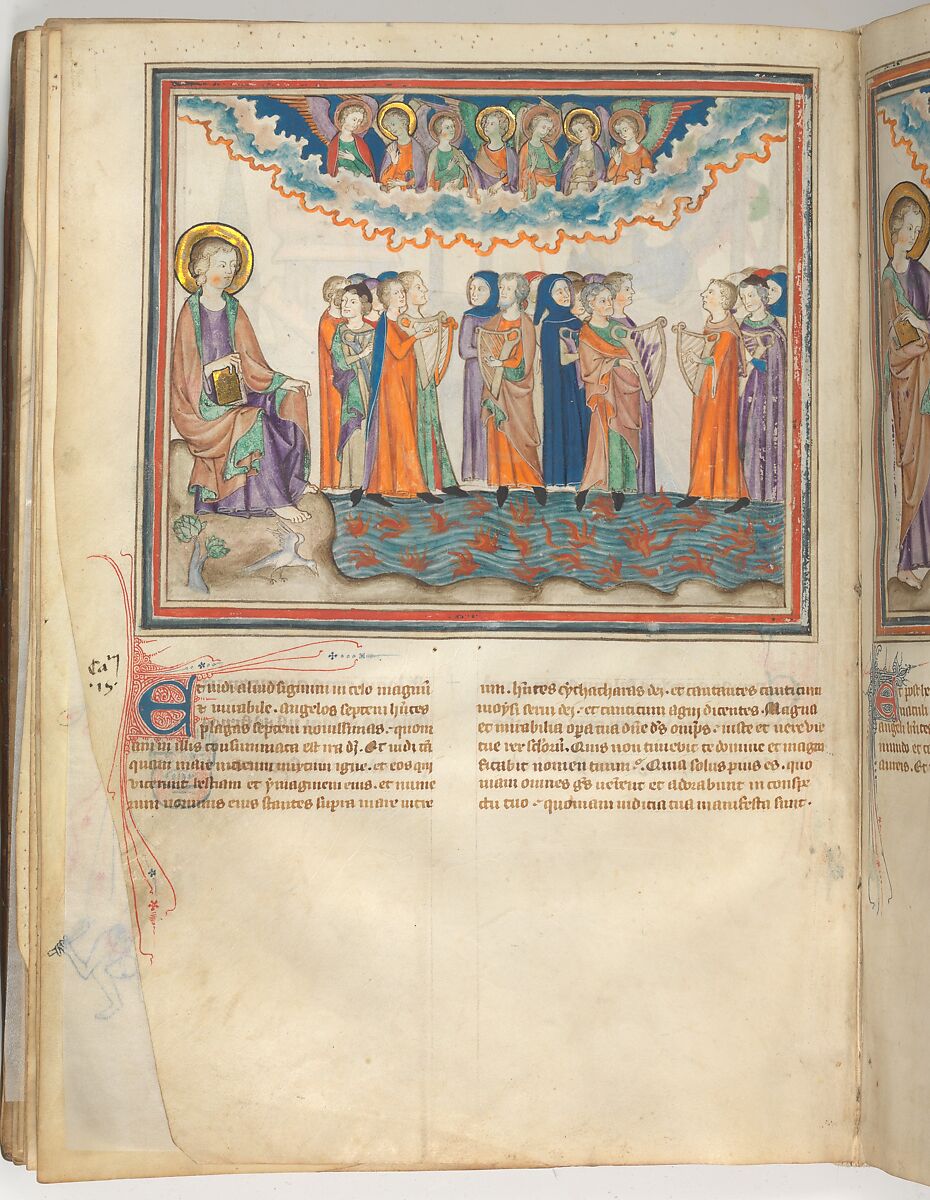 Ca.m
.15.
Et uidi aliud signum in celo magnū
et mirabile. angelos septem hñtes
plagas septem nouissimas. quoniam
in illis consummata est ira dī. Et uidi tā
quam mare uitreum mixtum igne. et eos qui
uicerunt bestiam et ymaginem eius. et nume
rum nominis eius stantes supra mare uitre
um. hñtes cythacharas dei. et cantantes canticum
moysi serui dei. et canticum agni dicentes. Magna
et mirabilia opera tua dñe ds omīps. iuste et uere uie
tue rex sclorū. Quis non timebit te domine et magni
ficabit nomen tuum. Quia solus pius es. quo
niam omnes gs uenient et adorabunt in conspe
ctu tuo. quoniam iudicia tua manifesta sunt.